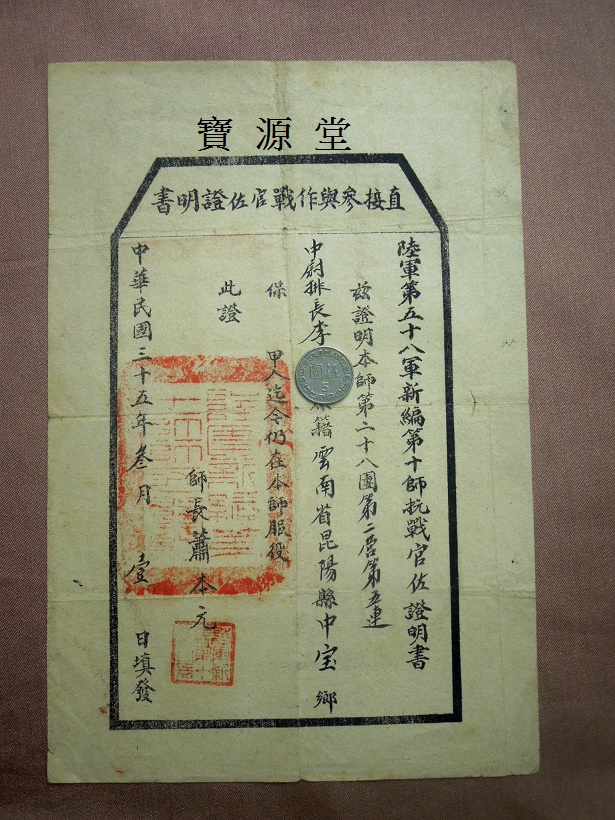 寶源堂
直接參與作戰官佐證明書
陸軍第五十八軍新編第十師抗戰官佐證明書
茲證明本師第二十八團第二营第五連
中尉排長李 籍雲南省昆陽縣中宝鄉
保 甲人迄今仍在本師服役
此證
師長蕭本元
中華民國三十五年叁月壹日填發
5